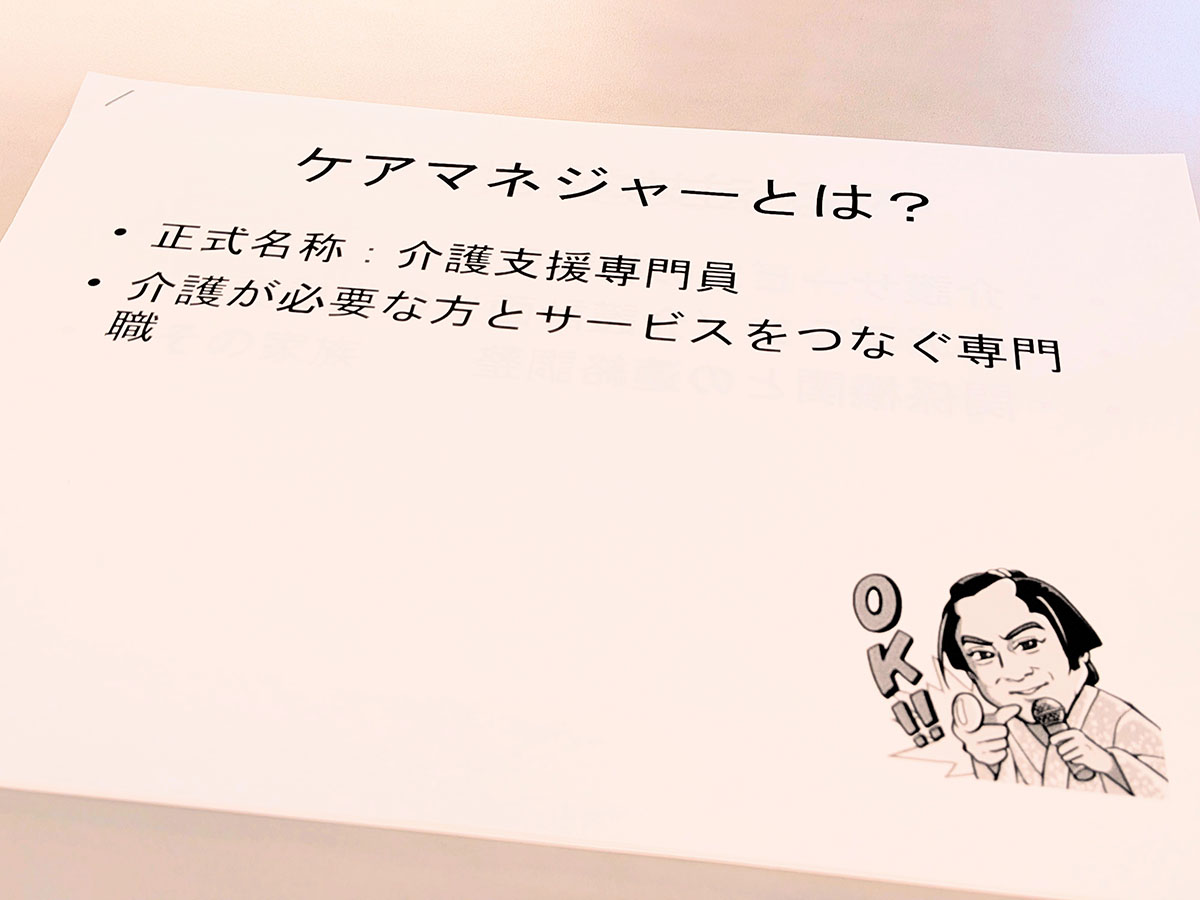 ケアマネジャーとは？
• 正式名称：介護支援専門員
• 介護が必要な方とサービスをつなぐ専門
職
OK!!